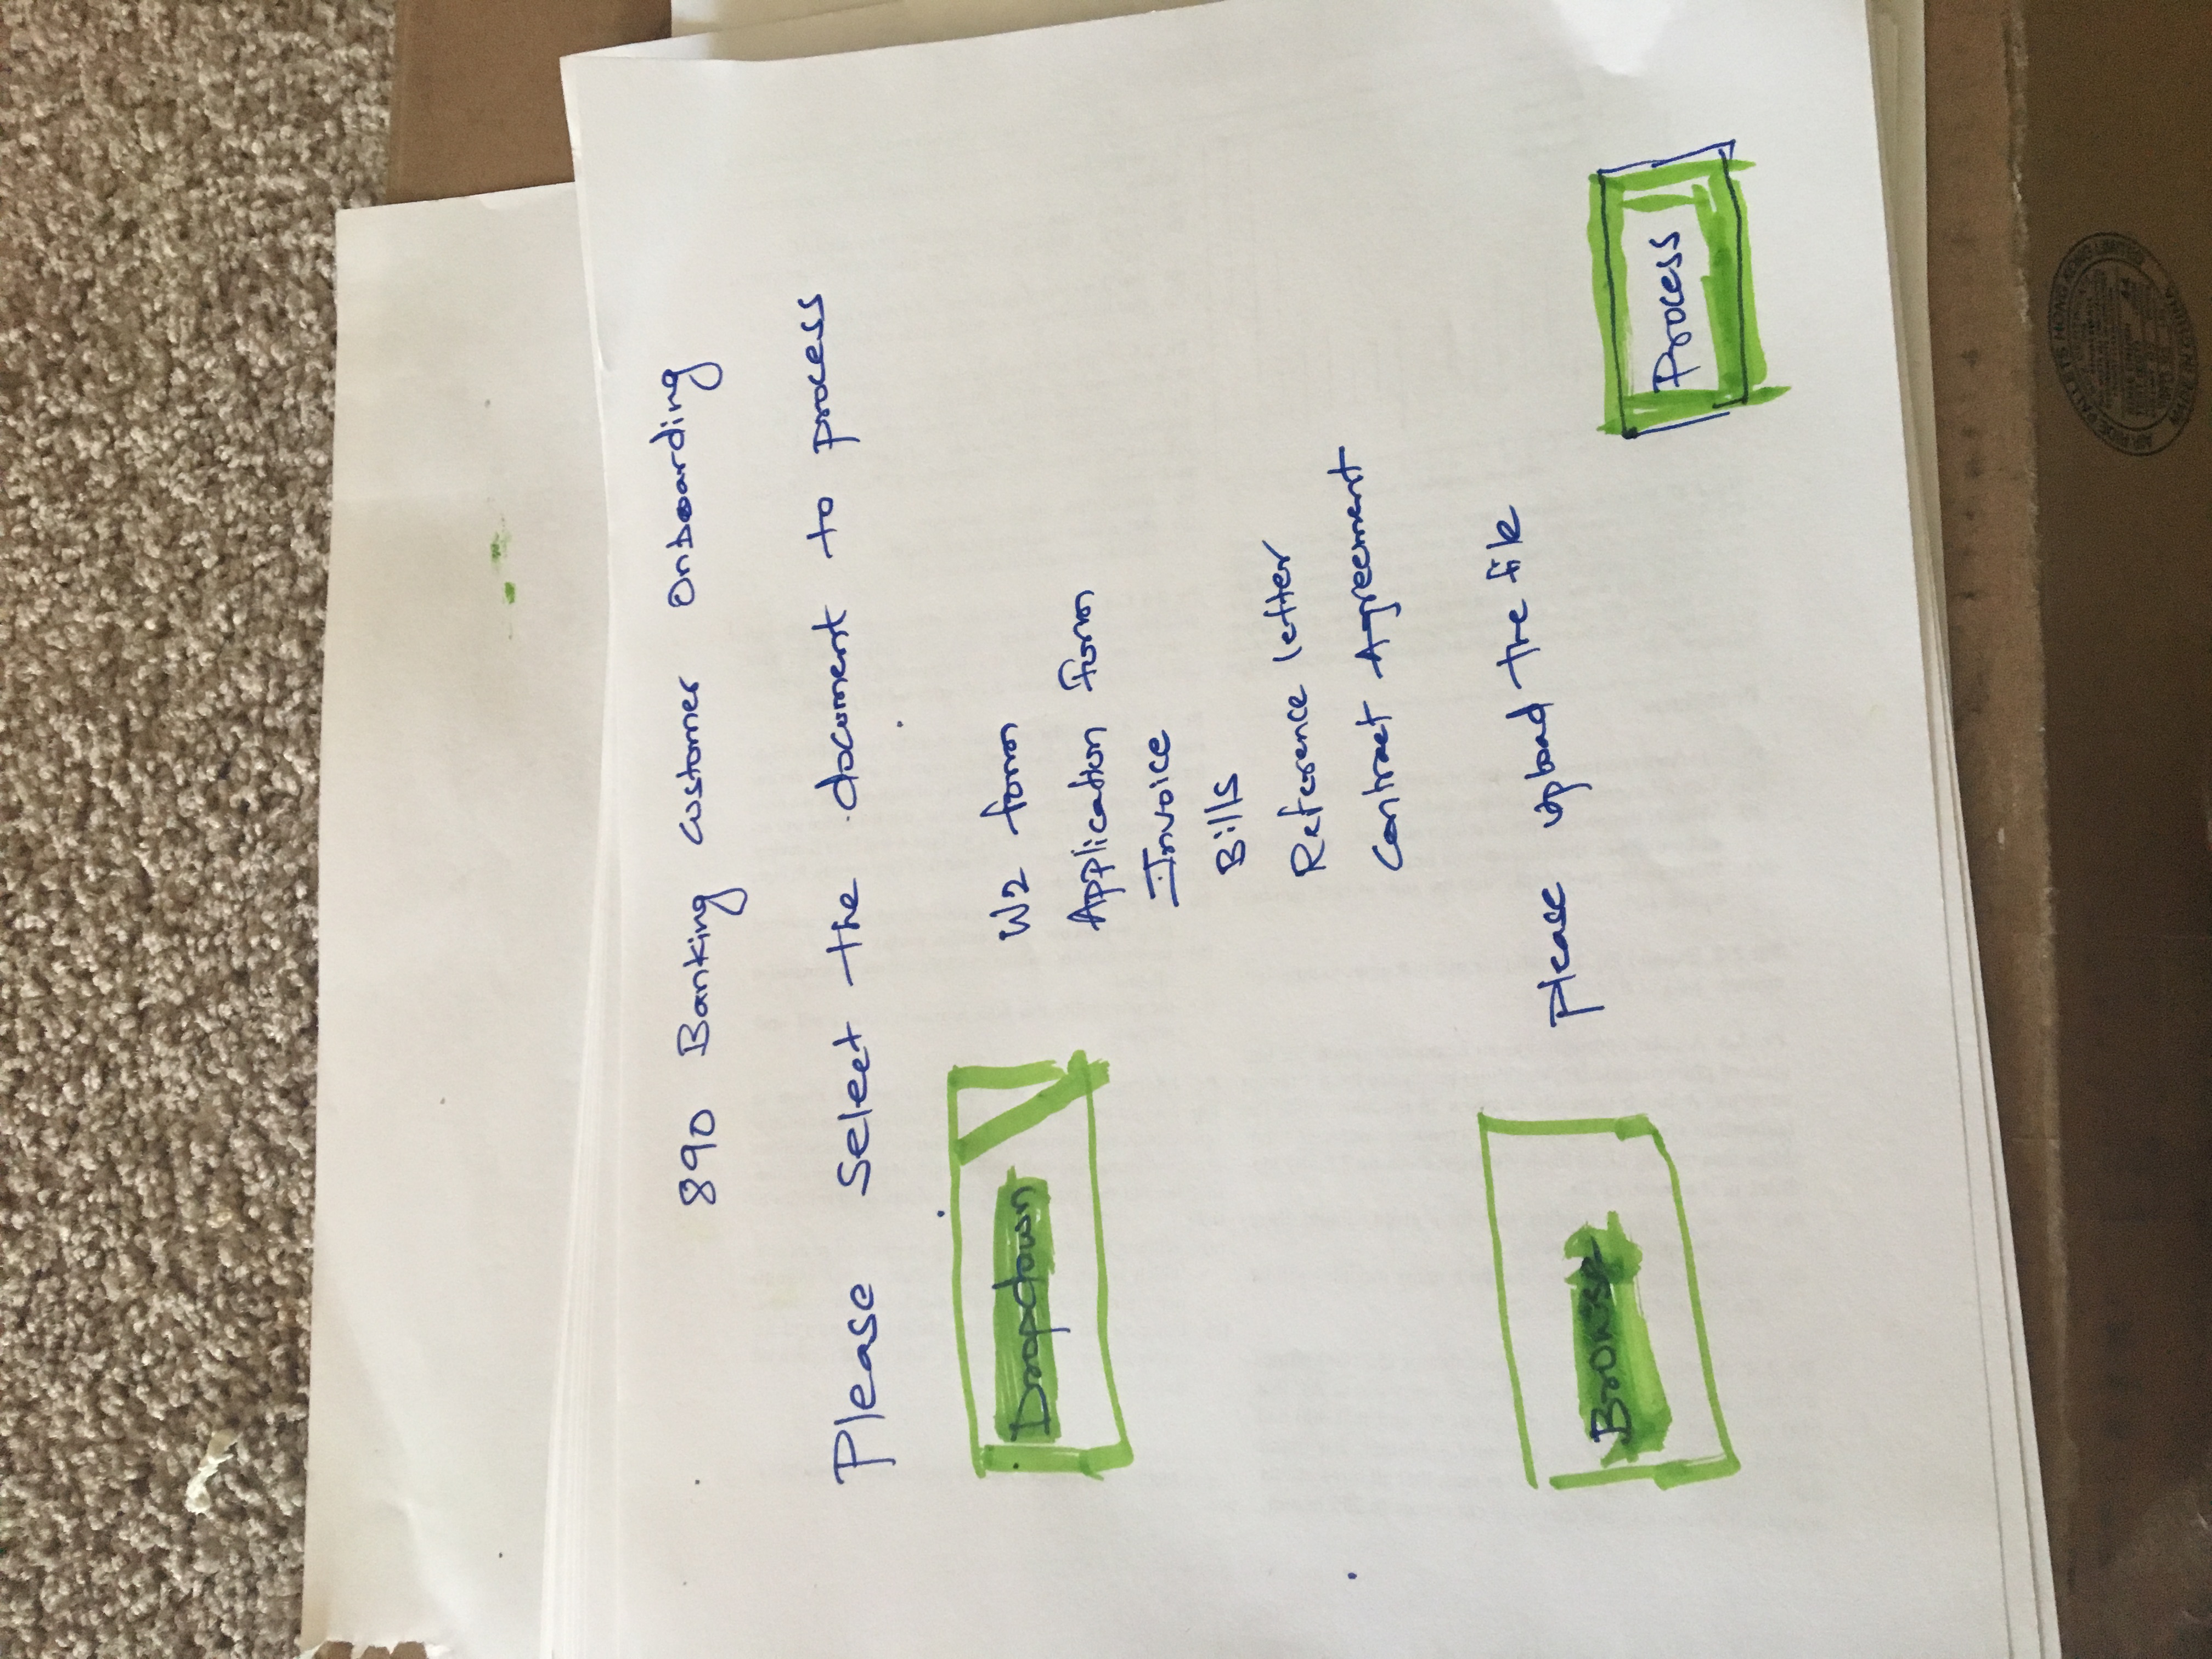 890 Banking Customer Onboarding
Please Select the document to process
Dropdown
W2 form
Application form
Invoice
Bills
Reference letter
Contract Agreement
Browse
please upload the file
Process
AIR RIDE PALLETS HONG KONG LIMITED
MADE IN CHINA